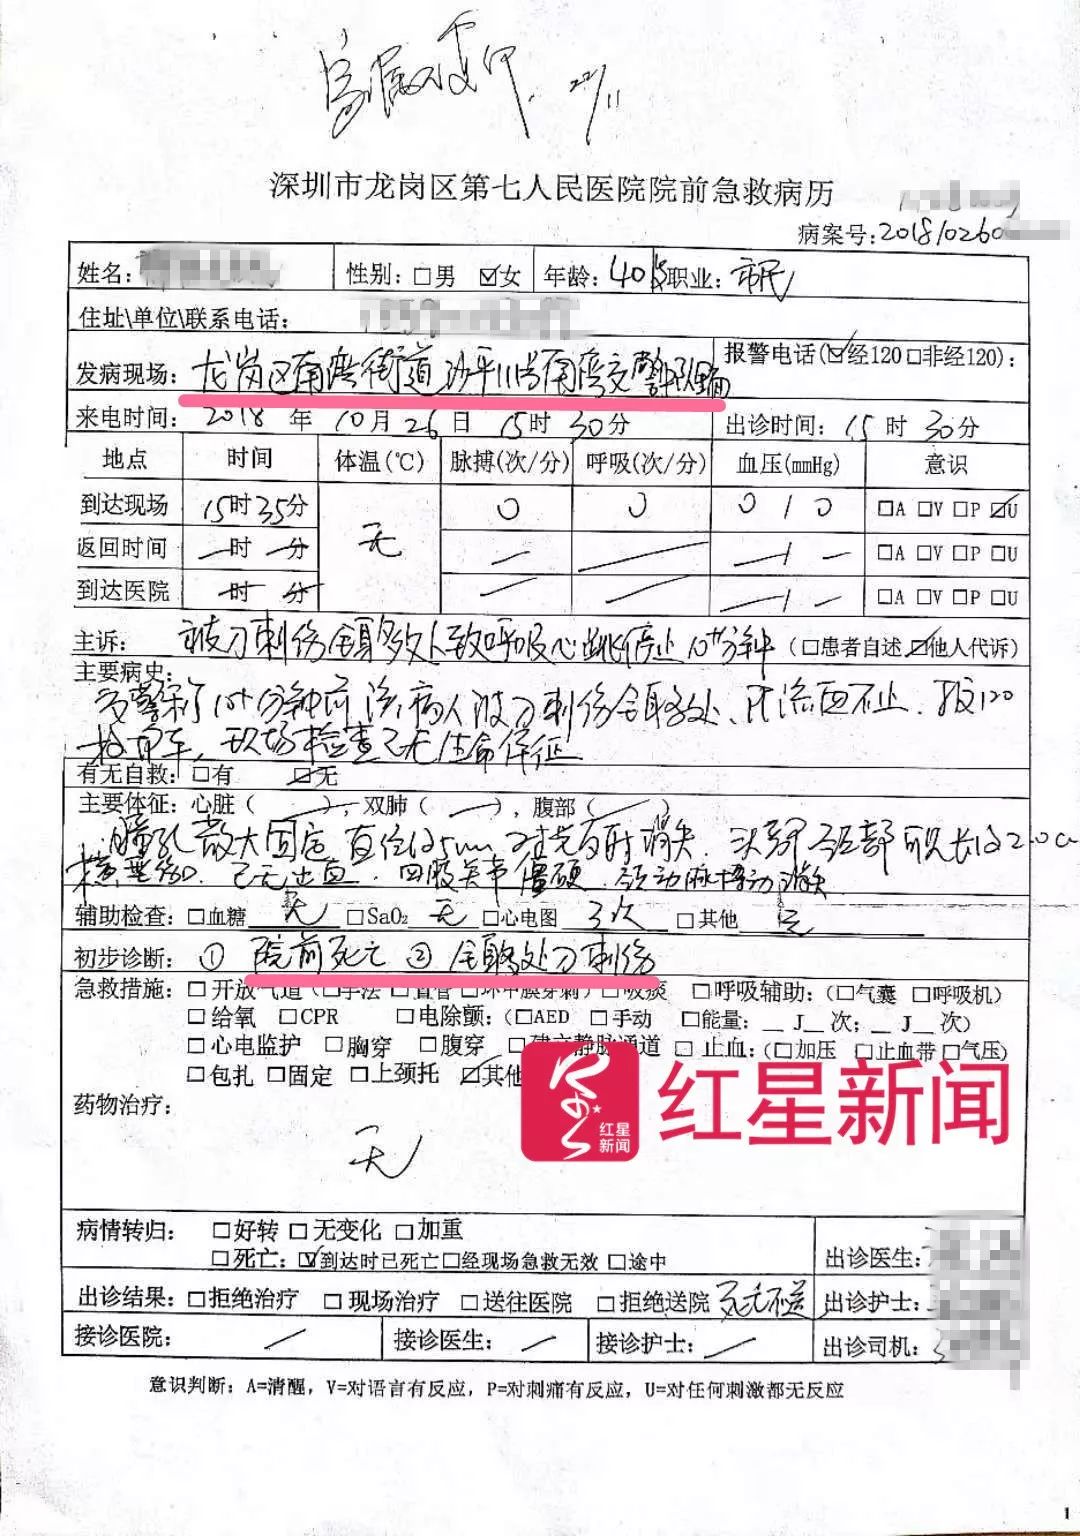 家属复印 22/11
深圳市龙岗区第七人民医院院前急救病历
病案号:20181026
姓名: 性别: □男 ☑女 年龄: 40岁 职业: 市民
住址\单位\联系电话:
发病现场: 龙岗区南湾街道 南湾交警 报警电话(☑经120□非经120):
来电时间: 2018 年 10月 26日 15时 30分 出诊时间: 15时 30分
地点 时间 体温(℃) 脉搏(次/分) 呼吸(次/分) 血压(mmHg) 意识
到达现场 15时35分 无 0 0 0 / 0 □A □V □P ☑U
返回时间 —时 —分 — — —/— □A □V □P □U
到达医院 —时 —分 — — —/— □A □V □P □U
主诉: 被刀刺伤全身多处致呼吸心跳停止10+分钟 (□患者自述 ☑他人代诉)
主要病史:
10+分钟前 该病人被刀刺伤全身多处、 流血不止. 报120
现场检查已无生命体征
有无自救: □有 ☑无
主要体征: 心脏( — ), 双肺( — ), 腹部( — )
瞳孔散大固定 直径约5mm 对光反射消失. 可见长约
已无出血. 四肢关节僵硬. 颈动脉搏动消失
辅助检查: □血糖 无 □SaO₂ 无 □心电图 3次 □其他 无
初步诊断: ① 院前死亡 ② 全身多处刀刺伤
急救措施: □开放气道(□手法 □置管 □环甲膜穿刺) □吸痰 □呼吸辅助: (□气囊 □呼吸机)
□给氧 □CPR □电除颤: (□AED □手动 □能量: __ J__ 次; __ J__ 次)
□心电监护 □胸穿 □腹穿 □建立静脉通道 □止血: (□加压 □止血带 □气压)
□包扎 □固定 □上颈托 ☑其他
红星新闻
红星新闻
药物治疗:
无
病情转归: □好转 □无变化 □加重
□死亡: ☑到达时已死亡□经现场急救无效 □途中 出诊医生:
出诊结果: □拒绝治疗 □现场治疗 □送往医院 □拒绝送院 死亡不送 出诊护士:
接诊医院: — 接诊医生: — 接诊护士: — 出诊司机:
意识判断: A=清醒, V=对语言有反应, P=对刺痛有反应, U=对任何刺激都无反应
1